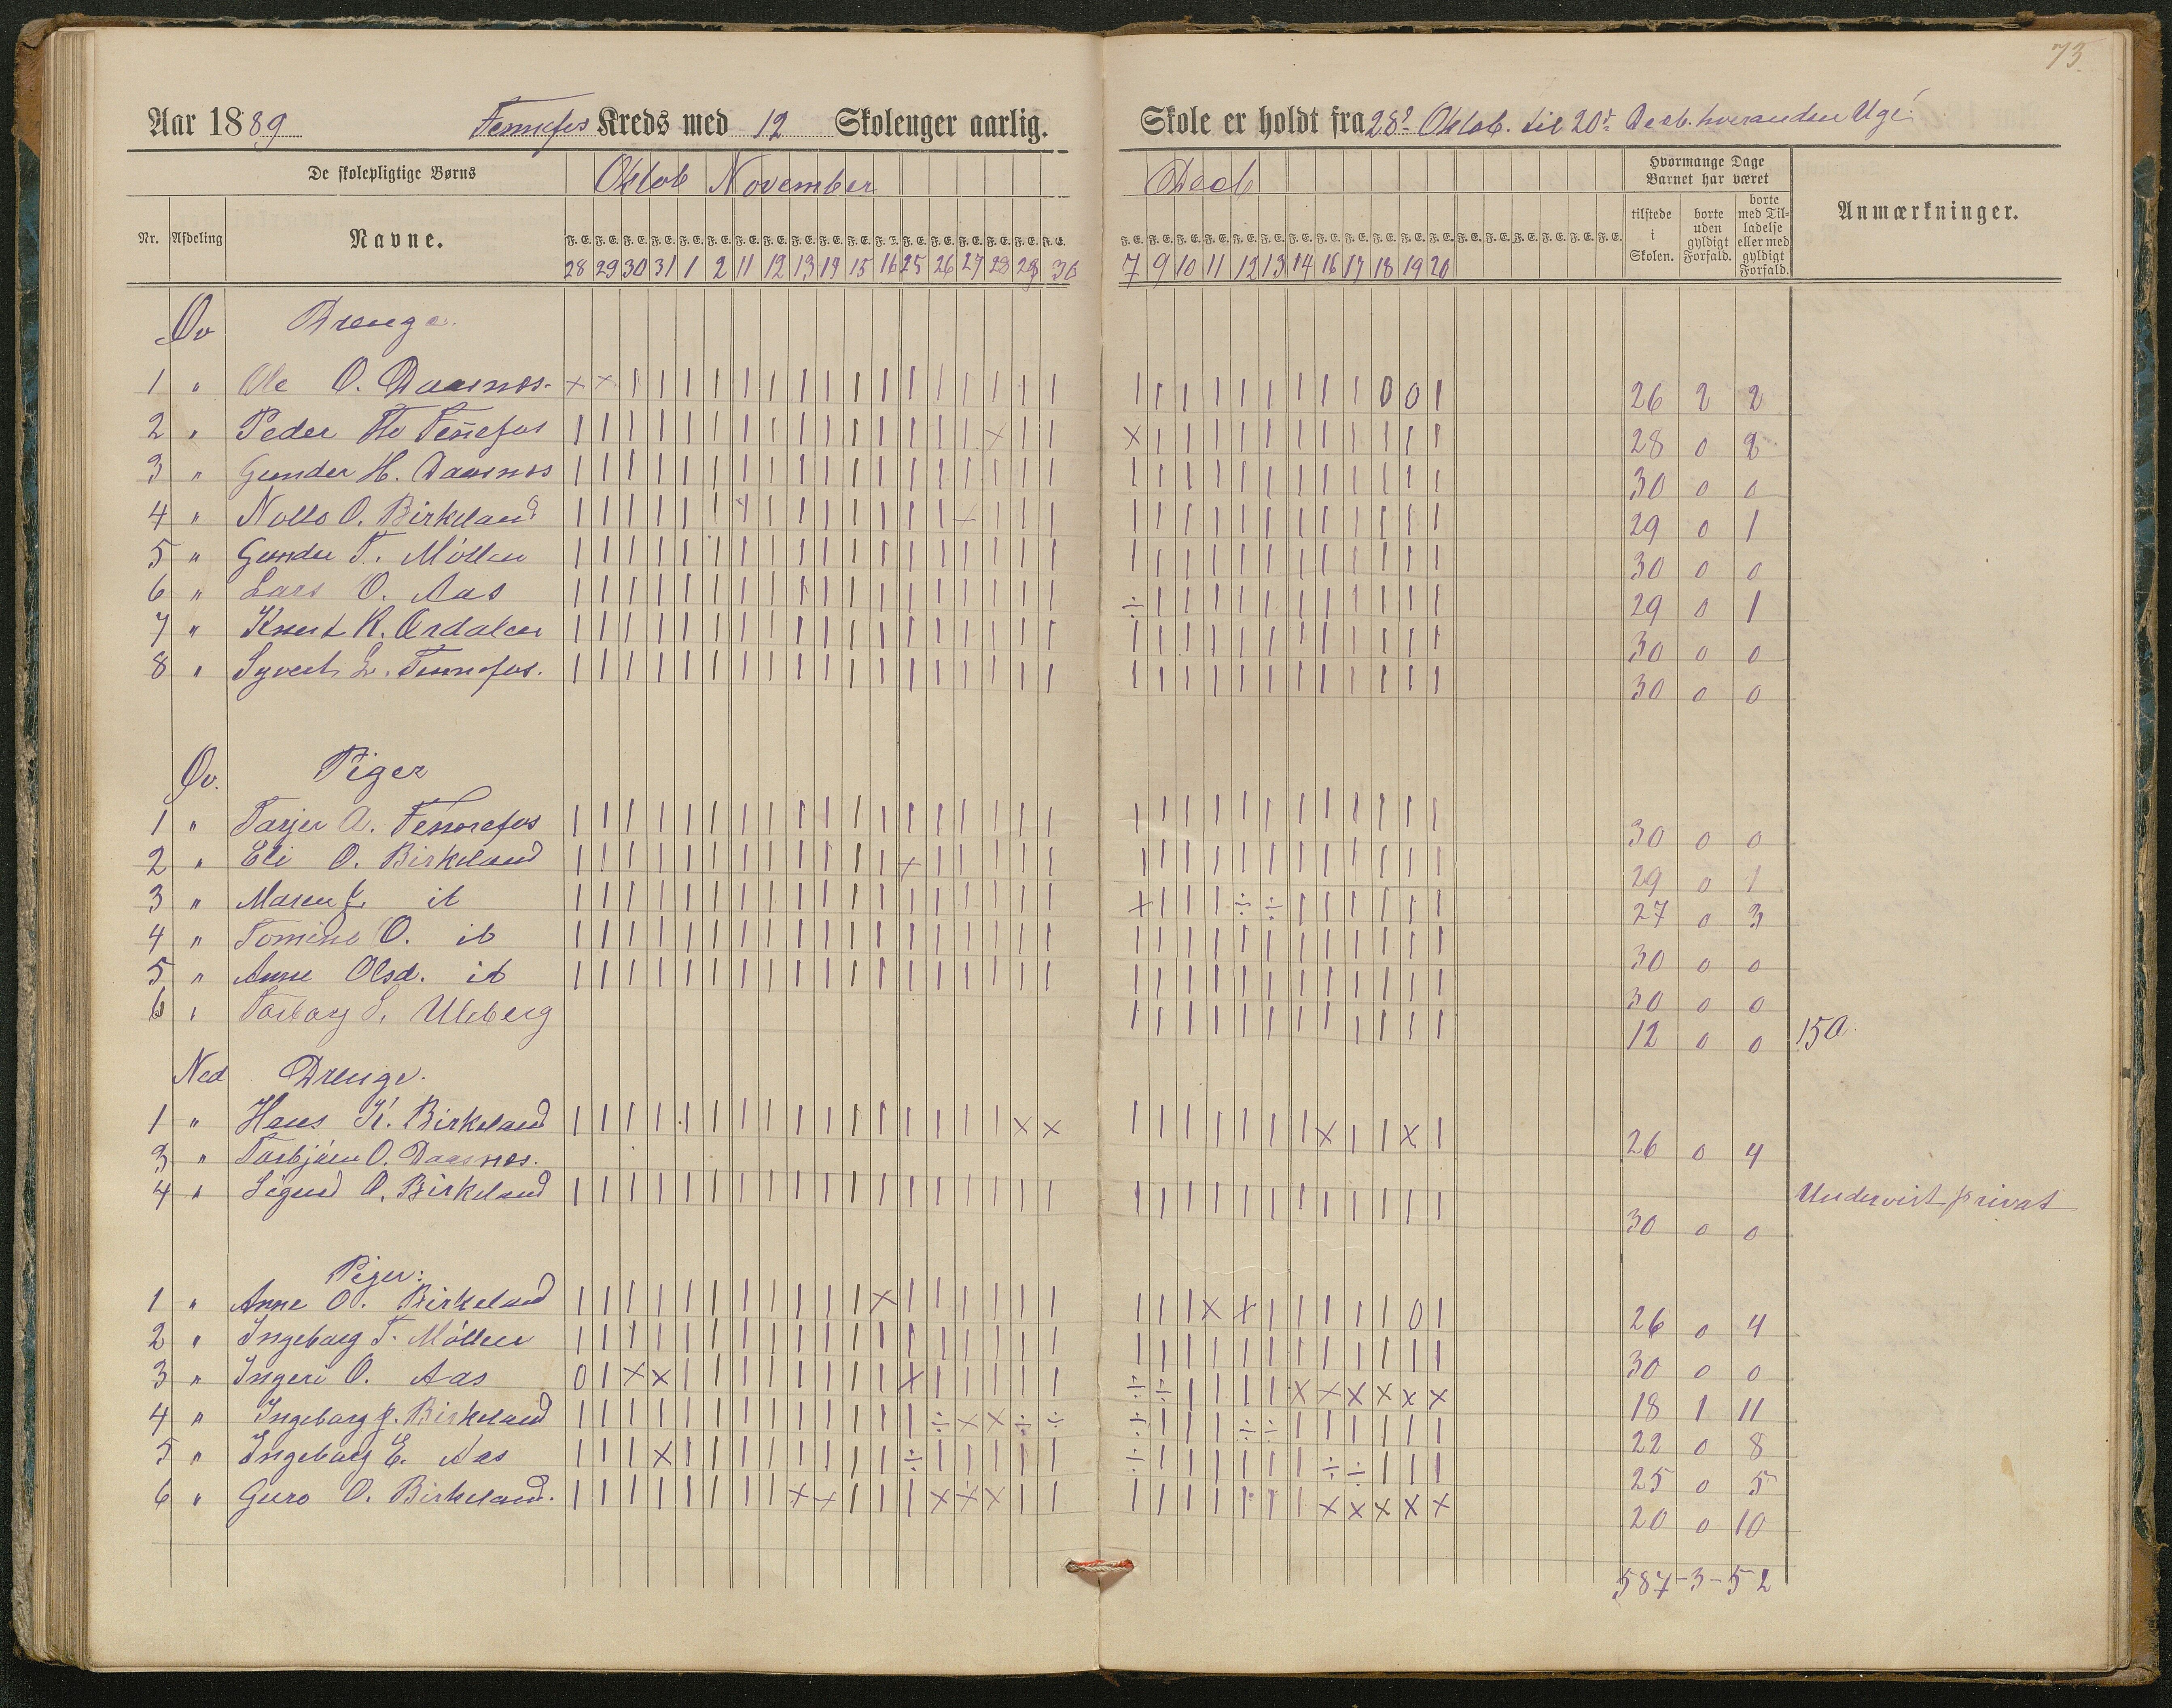 73
Aar 1889 Fennefos Kreds med 12 Skolenger aarlig. Skole er holdt fra 28d Oktob. til 20d Decb. hveranden Uge.
De skolepligtige Børns Oktob November Decb Hvormange Dage Barnet har været
Nr. Afdeling Navne. tilstede i Skolen. borte uden gyldigt Forfald. borte med Tilladelse eller med gyldigt Forfald. Anmærkninger.
F. E. F. E. F. E. F. E. F. E. F. E. F. E. F. E. F. E. F. E. F. E. F. E. F. E. F. E. F. E. F. E. F. E. F. E. F. E. F. E. F. E. F. E. F. E. F. E. F. E. F. E. F. E. F. E. F. E. F. E. F. E. F. E. F. E. F. E. F. E. F. E.
28 29 30 31 1 2 11 12 13 14 15 16 25 26 27 28 29 30 7 9 10 11 12 13 14 16 17 18 19 20
Øv Drenge.
1 " Ole O. Daasnes. × × | | | | | | | | | | | | | | | | | | | | | | | | | 0 0 | 26 2 2
2 " Peder Fennefos | | | | | | | | | | | | | | | × | | × | | | | | | | | | | | 28 0 2
3 " Gunder H. Daasnes | | | | | | | | | | | | | | | | | | | | | | | | | | | | | | 30 0 0
4 " O. Birkeland | | | | | | | | | | | | | | × | | | | | | | | | | | | | | | 29 0 1
5 " Gunder T. Möllen | | | | | | | | | | | | | | | | | | | | | | | | | | | | | | 30 0 0
6 " Lars O. Aas | | | | | | | | | | | | | | | | | | ÷ | | | | | | | | | | | 29 0 1
7 " Knut K. Ordalen | | | | | | | | | | | | | | | | | | | | | | | | | | | | | | 30 0 0
8 " Syvert L. Fennefos. | | | | | | | | | | | | | | | | | | | | | | | | | | | | | | 30 0 0
Øv. Piger
1 " Tarjer A. Fennefos | | | | | | | | | | | | | | | | | | | | | | | | | | | | | | 30 0 0
2 " Eli O. Birkeland | | | | | | | | | | | | × | | | | | | | | | | | | | | | | | 29 0 1
3 " Maren J. ib | | | | | | | | | | | | | | | | | | × | | | ÷ ÷ | | | | | | 27 0 3
4 " Tomine O. ib | | | | | | | | | | | | | | | | | | | | | | | | | | | | | | 30 0 0
5 " Anne Olsd. ib | | | | | | | | | | | | | | | | | | | | | | | | | | | | | | 30 0 0
6 " Torborg S. Uleberg | | | | | | | | | | | | 12 0 0
Ned Drenge.
1 " Hans K. Birkeland | | | | | | | | | | | | | | | | × × | | | | | | | × | | × | 26 0 4
3 " Torbjörn O. Daasnes. Undervist privat
4 " Sigurd O. Birkeland | | | | | | | | | | | | | | | | | | | | | | | | | | | | | | 30 0 0
Piger:
1 " Anne O. Birkeland | | | | | | | | | | | × | | | | | | | | | × × | | | | | 0 | 26 0 4
2 " Ingeborg T. Möllen | | | | | | | | | | | | | | | | | | | | | | | | | | | | | | 30 0 0
3 " Ingeri O. Aas 0 | × × | | | | | | | | × | | | | | ÷ ÷ | | | | × × × × × × 18 1 11
4 " Ingeborg J. Birkeland | | | | | | | | | | | | | ÷ × × ÷ ÷ ÷ | | | ÷ ÷ | | | | | | 22 0 8
5 " Ingeborg E. Aas | | | × | | | | | | | | ÷ | | | | | ÷ | | | | | | ÷ ÷ | | | 25 0 5
6 " Guro O. Birkeland. | | | | | | | | × × | | | × × × | | | | | | | | | × × × × × 20 0 10
587-3-52